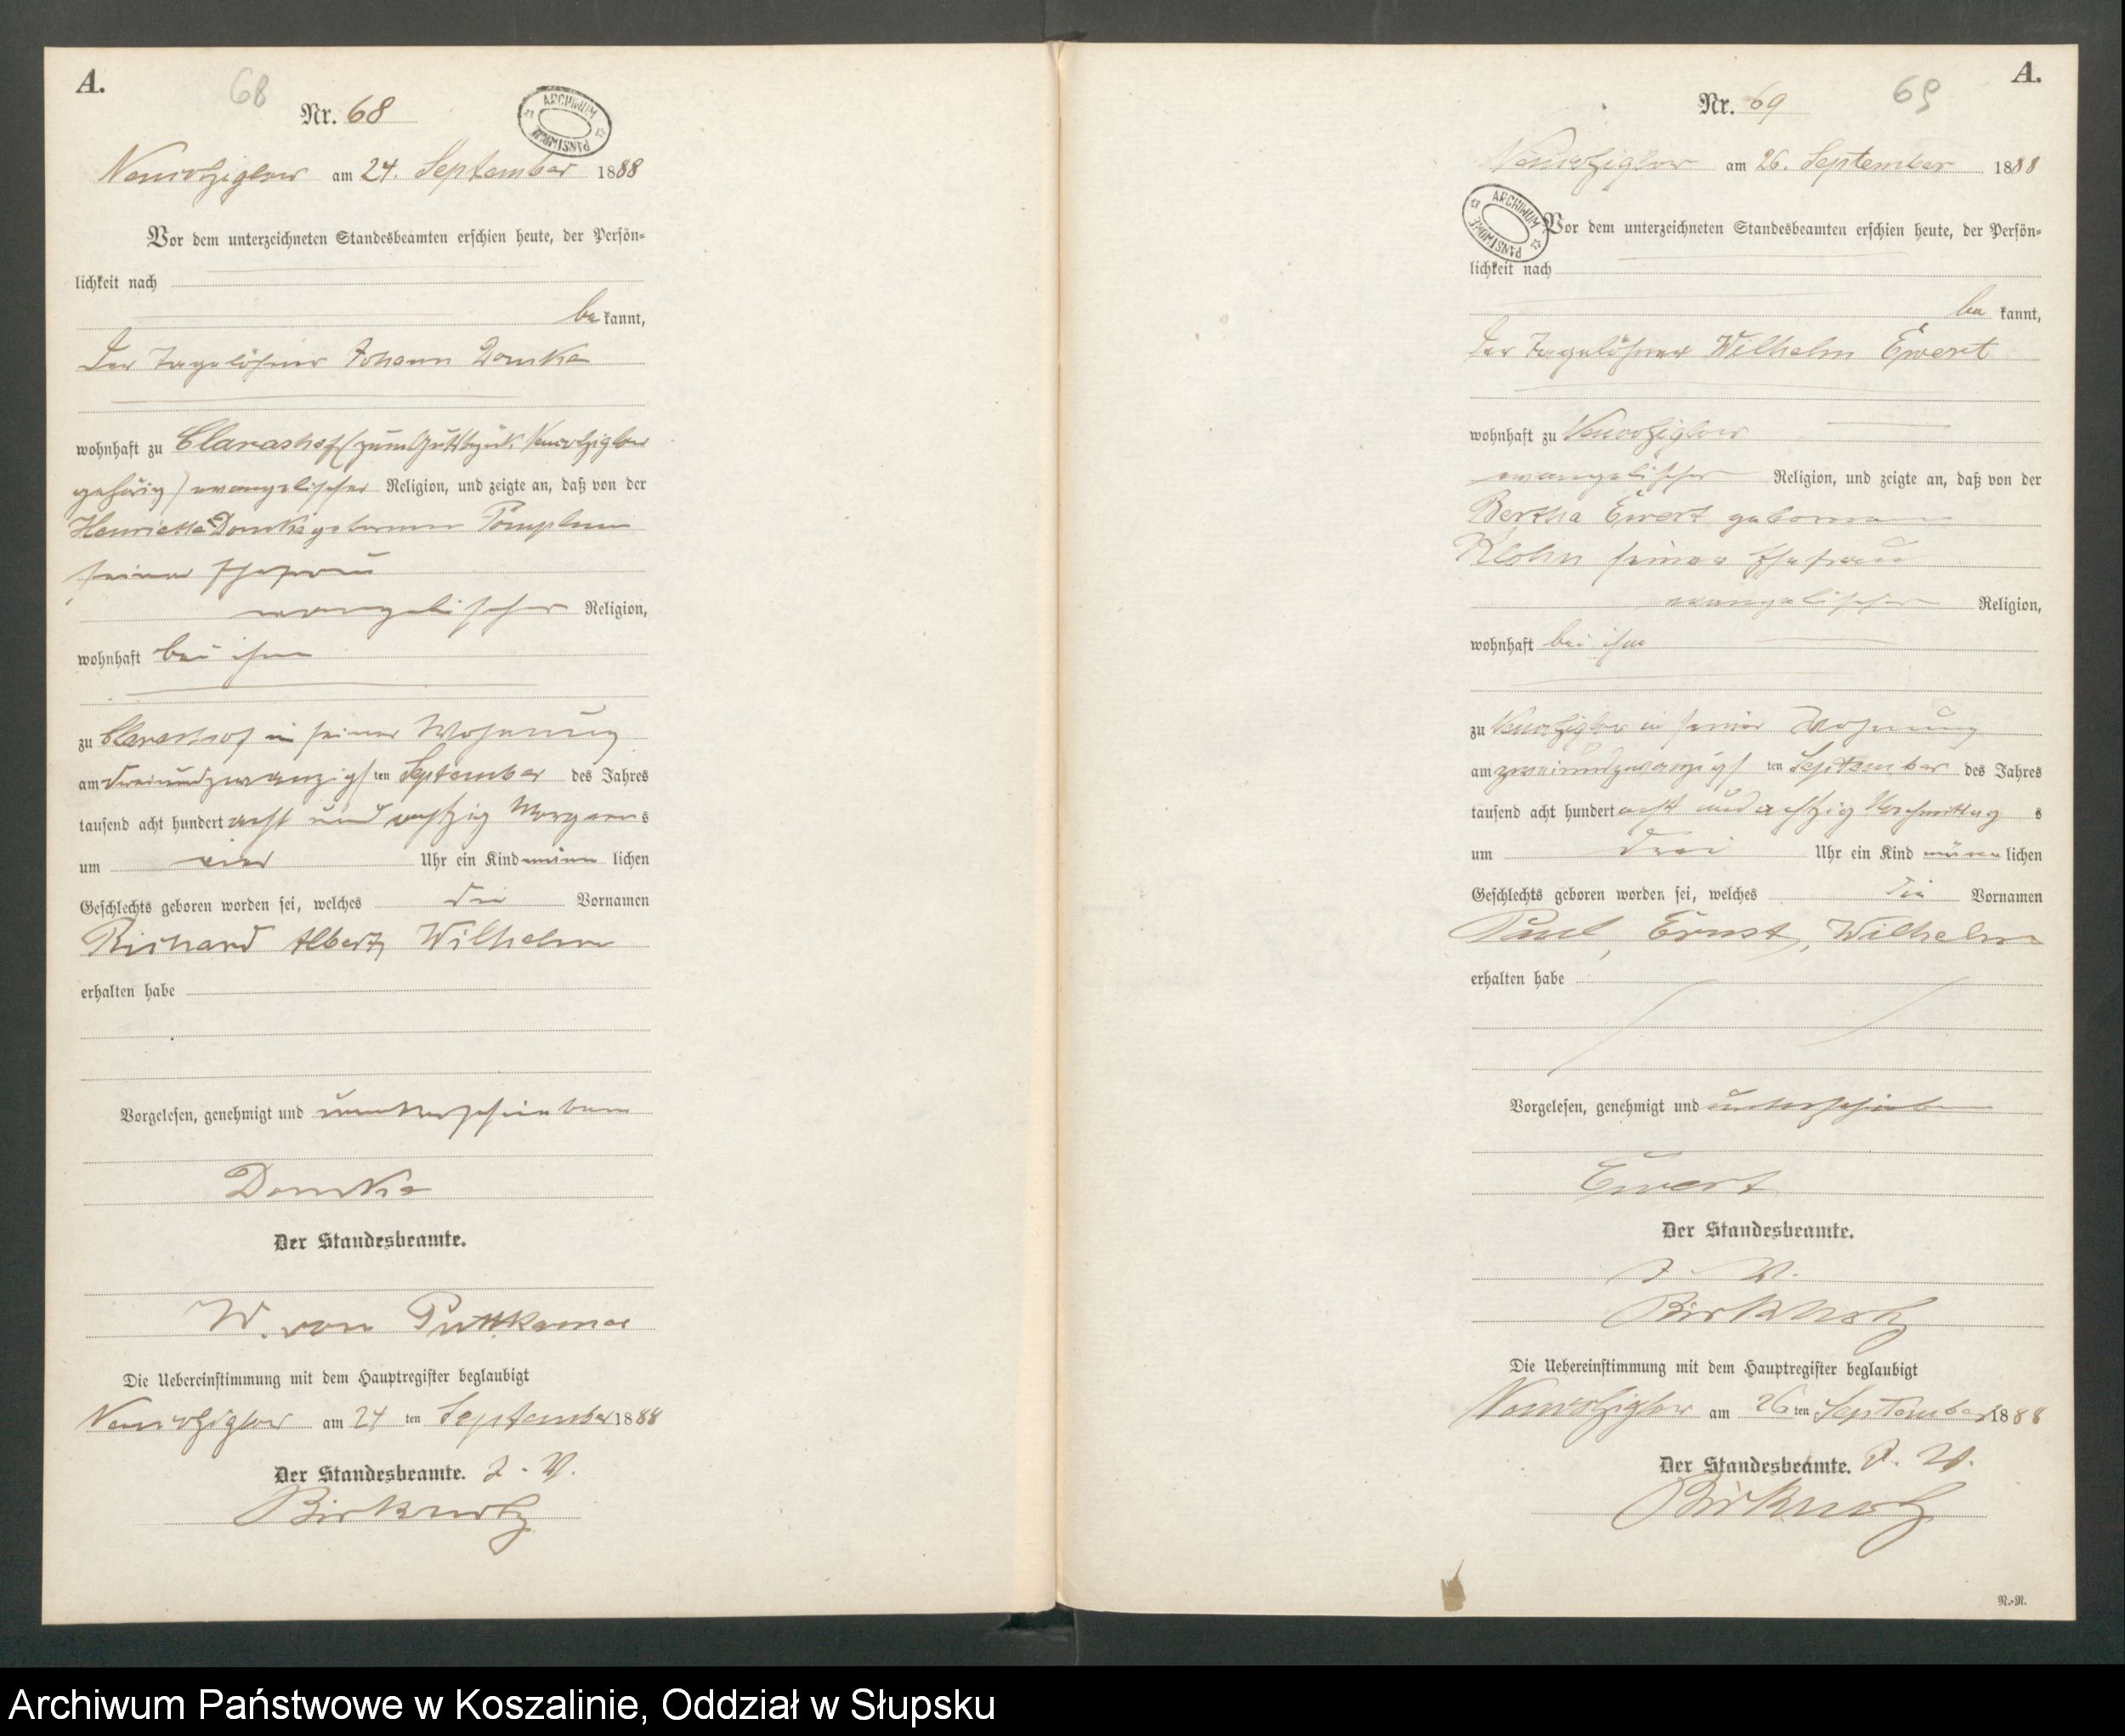 A.
68
Nr. 68
ARCHIWUM PAŃSTWOWE
am 24. September 1888
Vor dem unterzeichneten Standesbeamten erschien heute, der Persön-
lichkeit nach
be kannt,
der Tagelöhner Johann Domke
wohnhaft zu Clarashof (zum Gutsbezirk
gehörig) evangelischer Religion, und zeigte an, daß von der
Henriette Domke geborenen
seiner Ehefrau
evangelischer Religion,
wohnhaft bei ihm
zu Clarashof in seiner Wohnung
am dreiundzwanzigs ten September des Jahres
tausend acht hundert acht und achtzig Morgens
um vier Uhr ein Kind männ lichen
Geschlechts geboren worden sei, welches die Vornamen
Richard Albert Wilhelm
erhalten habe
Vorgelesen, genehmigt und unterschrieben
Domke
Der Standesbeamte.
W. von Puttkamer
Die Uebereinstimmung mit dem Hauptregister beglaubigt
am 24 ten September 1888
Der Standesbeamte. J. V.
A.
69
Nr. 69
ARCHIWUM PAŃSTWOWE
am 26. September 1888
Vor dem unterzeichneten Standesbeamten erschien heute, der Persön-
lichkeit nach
be kannt,
der Tagelöhner Wilhelm Ewert
wohnhaft zu
evangelischer Religion, und zeigte an, daß von der
Bertha Ewert geborenen
seiner Ehefrau
evangelischer Religion,
wohnhaft bei ihm
zu in seiner Wohnung
am zweiundzwanzigs ten September des Jahres
tausend acht hundert acht und achtzig s
um drei Uhr ein Kind männ lichen
Geschlechts geboren worden sei, welches die Vornamen
Paul, Ernst, Wilhelm
erhalten habe
Vorgelesen, genehmigt und unterschrieben
Ewert
Der Standesbeamte.
J. V.
Die Uebereinstimmung mit dem Hauptregister beglaubigt
am 26 ten September 1888
Der Standesbeamte. J. V.
Archiwum Państwowe w Koszalinie, Oddział w Słupsku